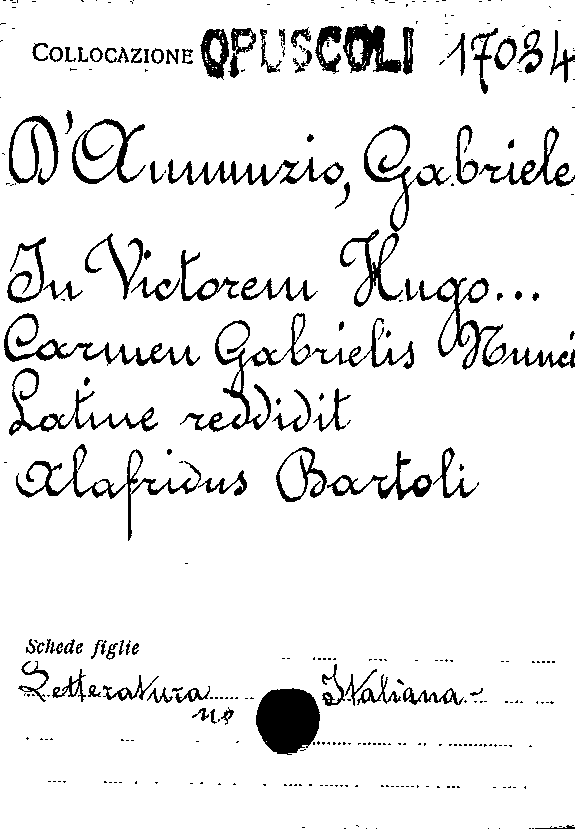 COLLOCAZIONE OPUSCOLI 17034
D'Annunzio, Gabriele
In Victorem Hugo...
Carmen Gabrielis Nunci
Latine reddidit
Alafridus Bartoli
Schede figlie
Letteratura Italiana-
no